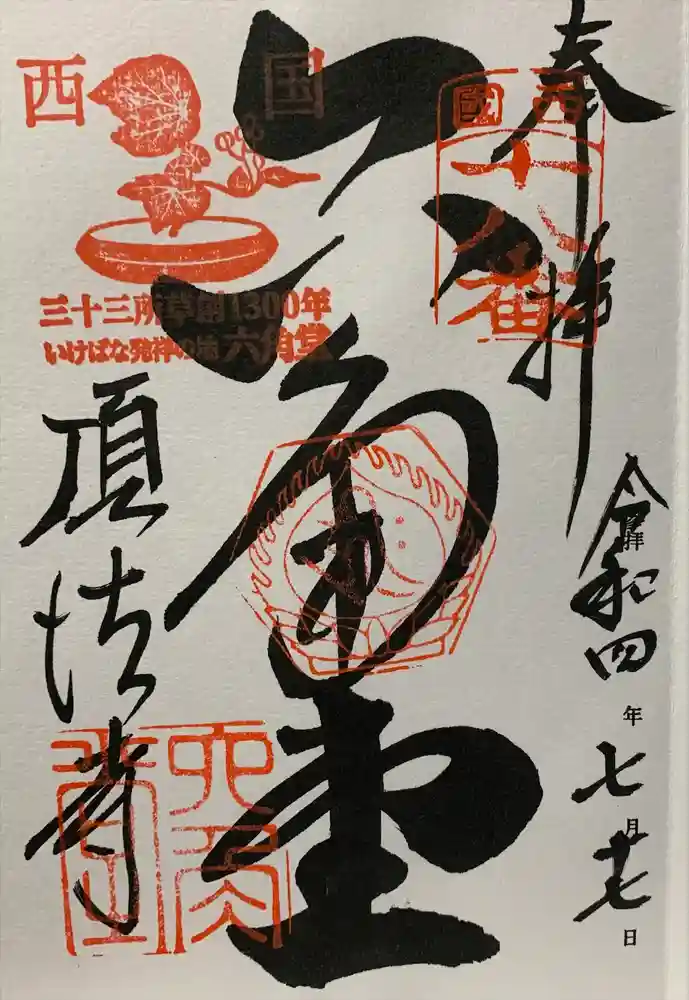 奉拝
西国
十八番
令和四年七月十七日
六角堂
西国
三十三所草創1300年
いけばな発祥の地 六角堂
頂法寺
六角堂印